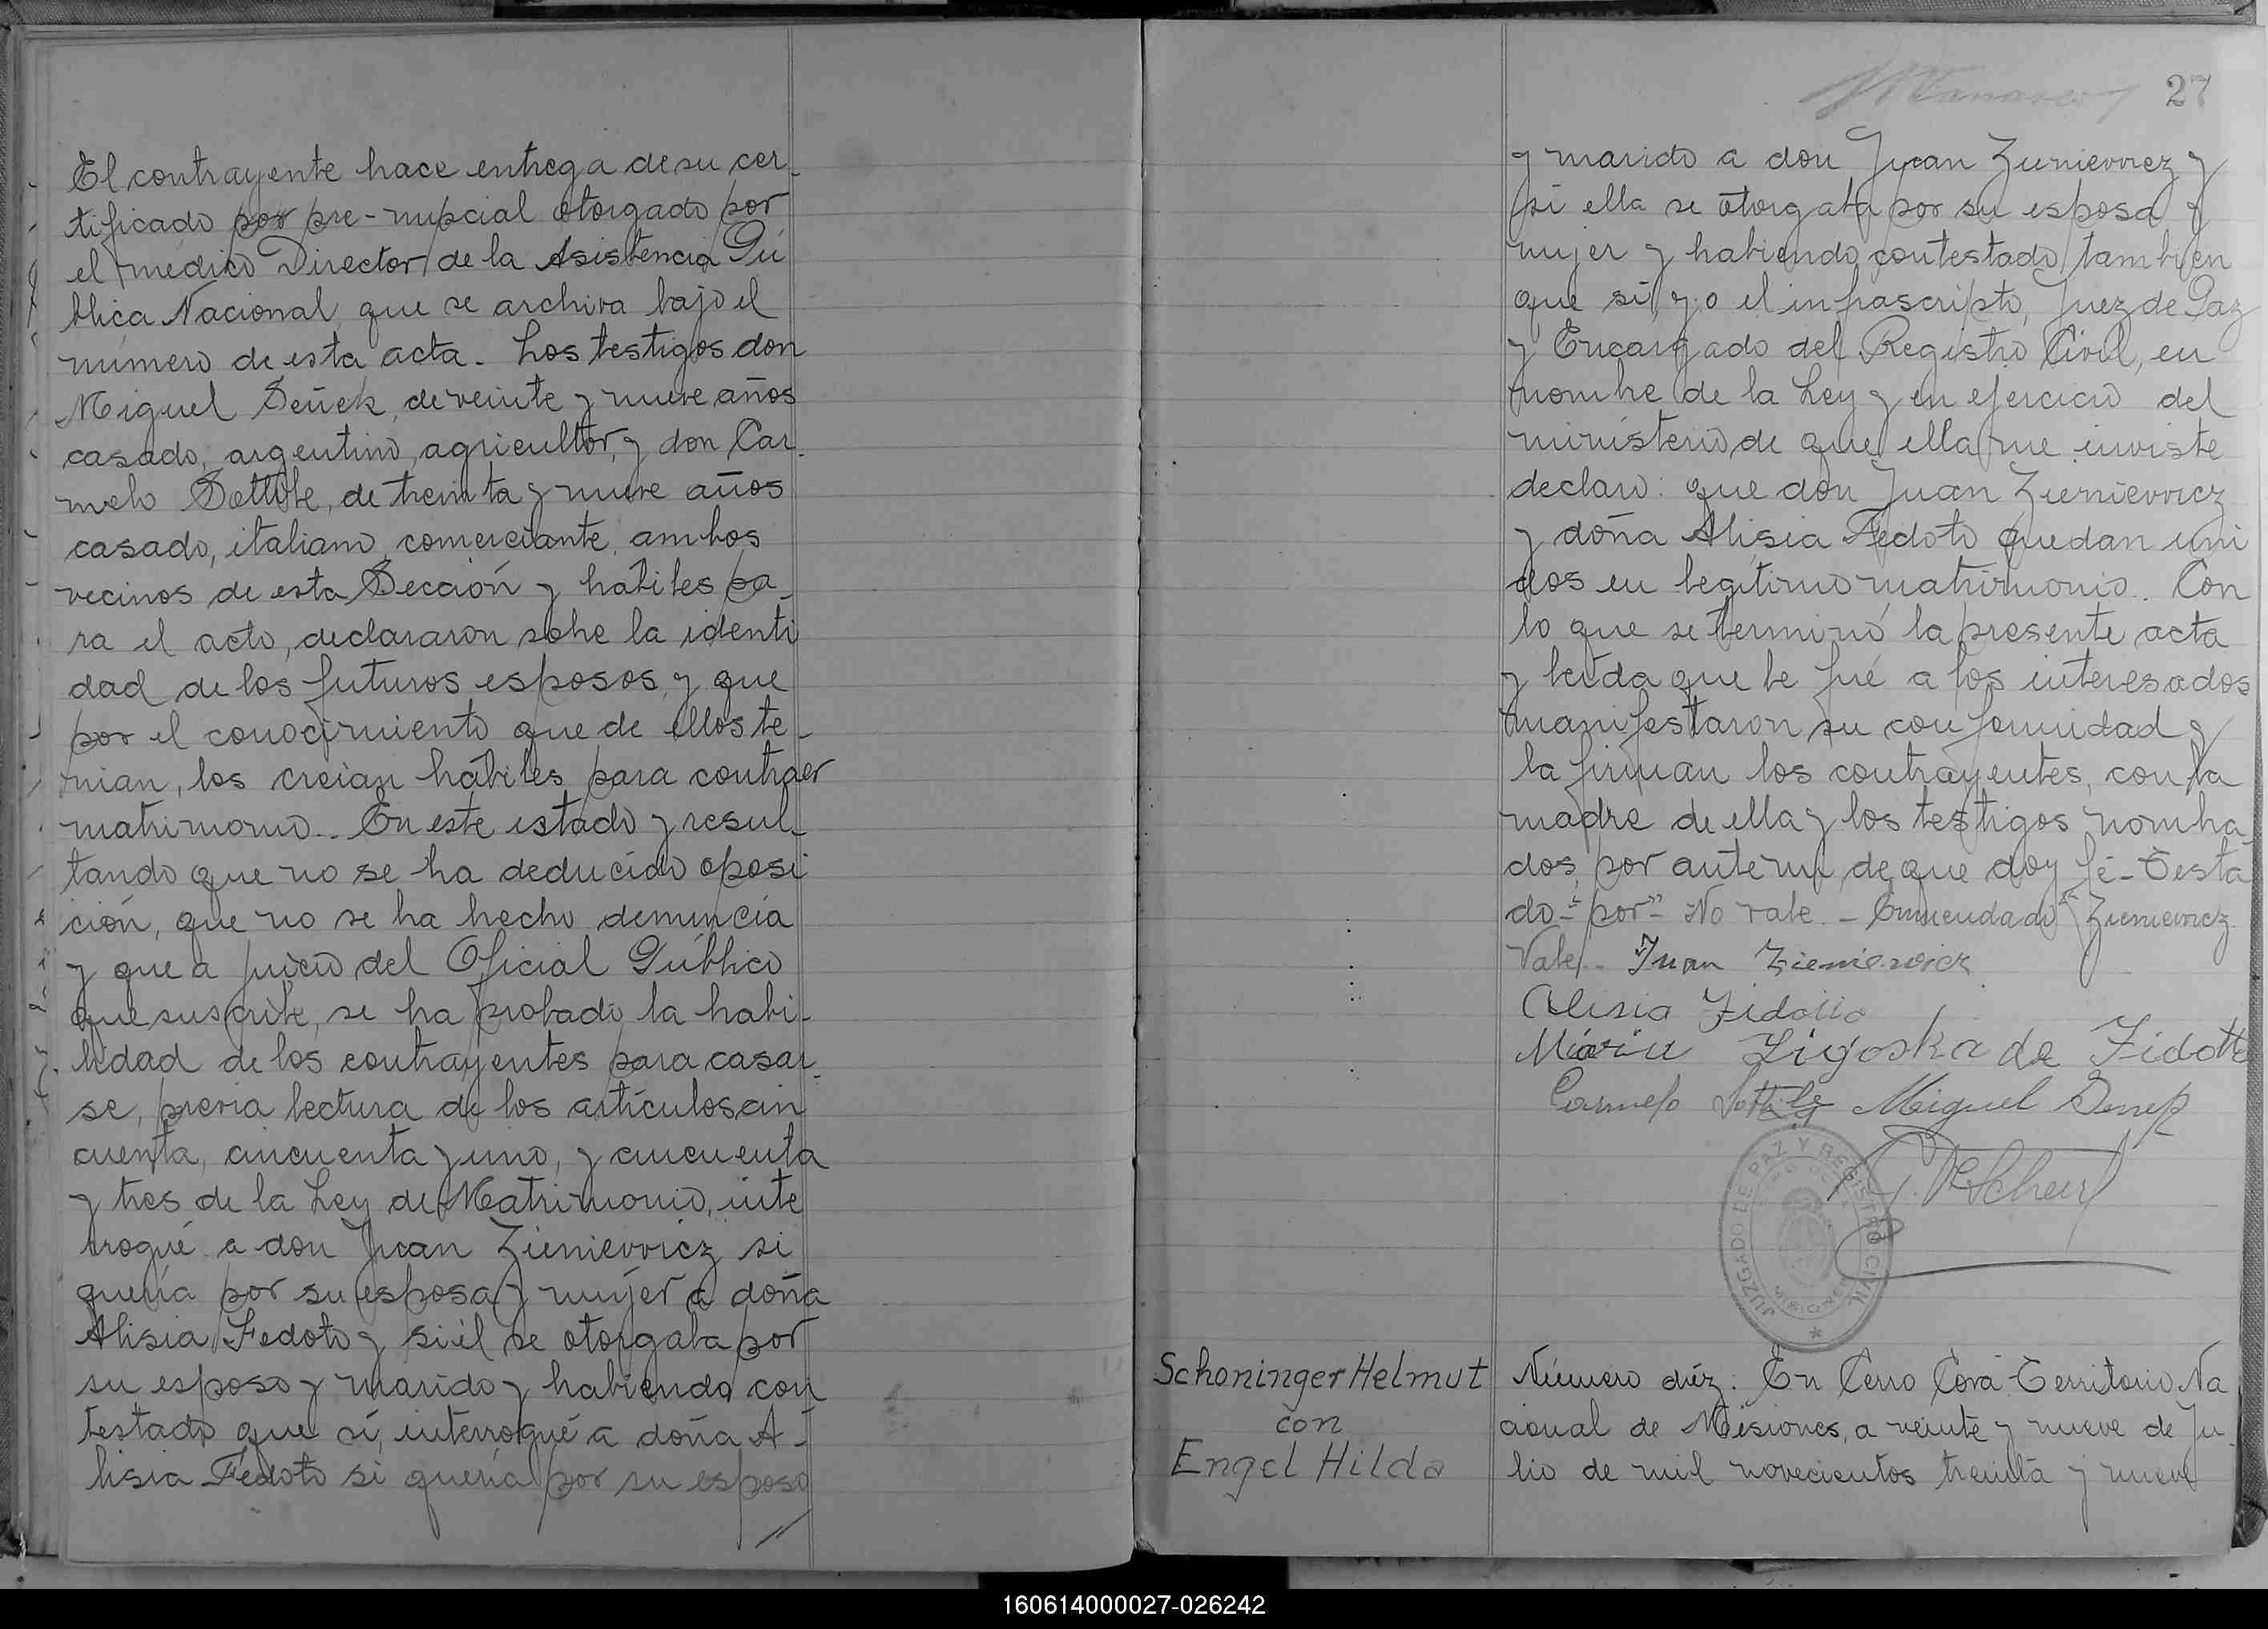 El contrayente hace entrega de su cer-
tificado por pre-nupcial otorgado por
el médico Director de la Asistencia Pú
blica Nacional, que se archiva bajo el
número de esta acta. Los testigos don
Miguel Seńek, de veinte y nueve años
casado, argentino, agricultor, y don Car-
melo Sottile, de treinta y nueve años
casado, italiano, comerciante, ambos
vecinos de esta Sección y hábiles pa-
ra el acto, declararon sobre la identi
dad de los futuros esposos, y que
por el conocimiento que de ellos te-
nian, los creian hábiles para contraer
matrimonio. En este estado y resul-
tando que no se ha deducido oposi
ción, que no se ha hecho denuncia
y que a juicio del Oficial Público
que suscribe, se ha probado la habi-
lidad de los contrayentes para casar-
se, previa lectura de los artículos cin
cuenta, cincuenta y uno, y cincuenta
y tres de la Ley de Matrimonio, inte
rrogué a don Juan Zieniewicz si
quería por su esposa y mujer a doña
Alisia Fedoto y si él se otorgaba por
su esposo y marido y habiendo con
testado que sí, interrogué a doña A-
lisia Fedoto si quería por su esposo
27
y marido a don Juan Zieniewicz y
si ella se otorgaba por su esposa y
mujer y habiendo contestado tambien
que sí, yo el infrascripto, Juez de Paz
y Encargado del Registro Civil, en
nombre de la Ley y en ejercicio del
ministerio de que ella me inviste
declaro: que don Juan Zieniewicz
y doña Alisia Fedoto quedan uni
dos en legítimo matrimonio. Con
lo que se terminó la presente acta
y leida que le fué a los interesados
manifestaron su conformidad y
la firman los contrayentes, con la
madre de ella y los testigos nombra
dos, por ante mi, de que doy fé - Testa
do - "por" - No vale. - Enmendado "Zieniewicz
Vale. - Juan Zieniewicz
Alisia Fidotto
Maria Ligoska de Fidotto
Carmelo Sottile Miguel
JUZGADO DE PAZ Y REGISTRO CIVIL
MISIONES
Schoninger Helmut
con
Engel Hilda
Número diéz. En Cerro Corá Territorio Na
cional de Misiones, a veinte y nueve de Ju-
lio de mil novecientos treinta y nueve
160614000027-026242